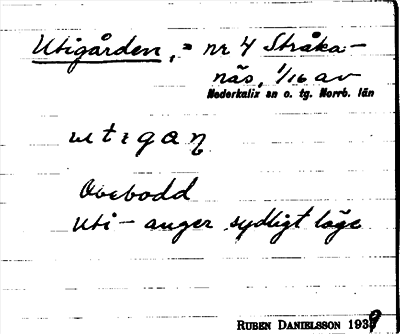 Utigården, = nr 4 Stråka-
näs, 1/16 av
Nederkalix sn o. tg. Norrb. län
utıgaɳ
Obebodd
Uti- anger sydligt läge
RUBEN DANIELSSON 1939